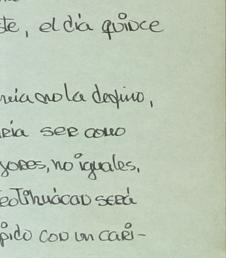 te, el día quince
la destino,
ría ser como
yores, no iguales,
eotihuácan será
pido con un cari-